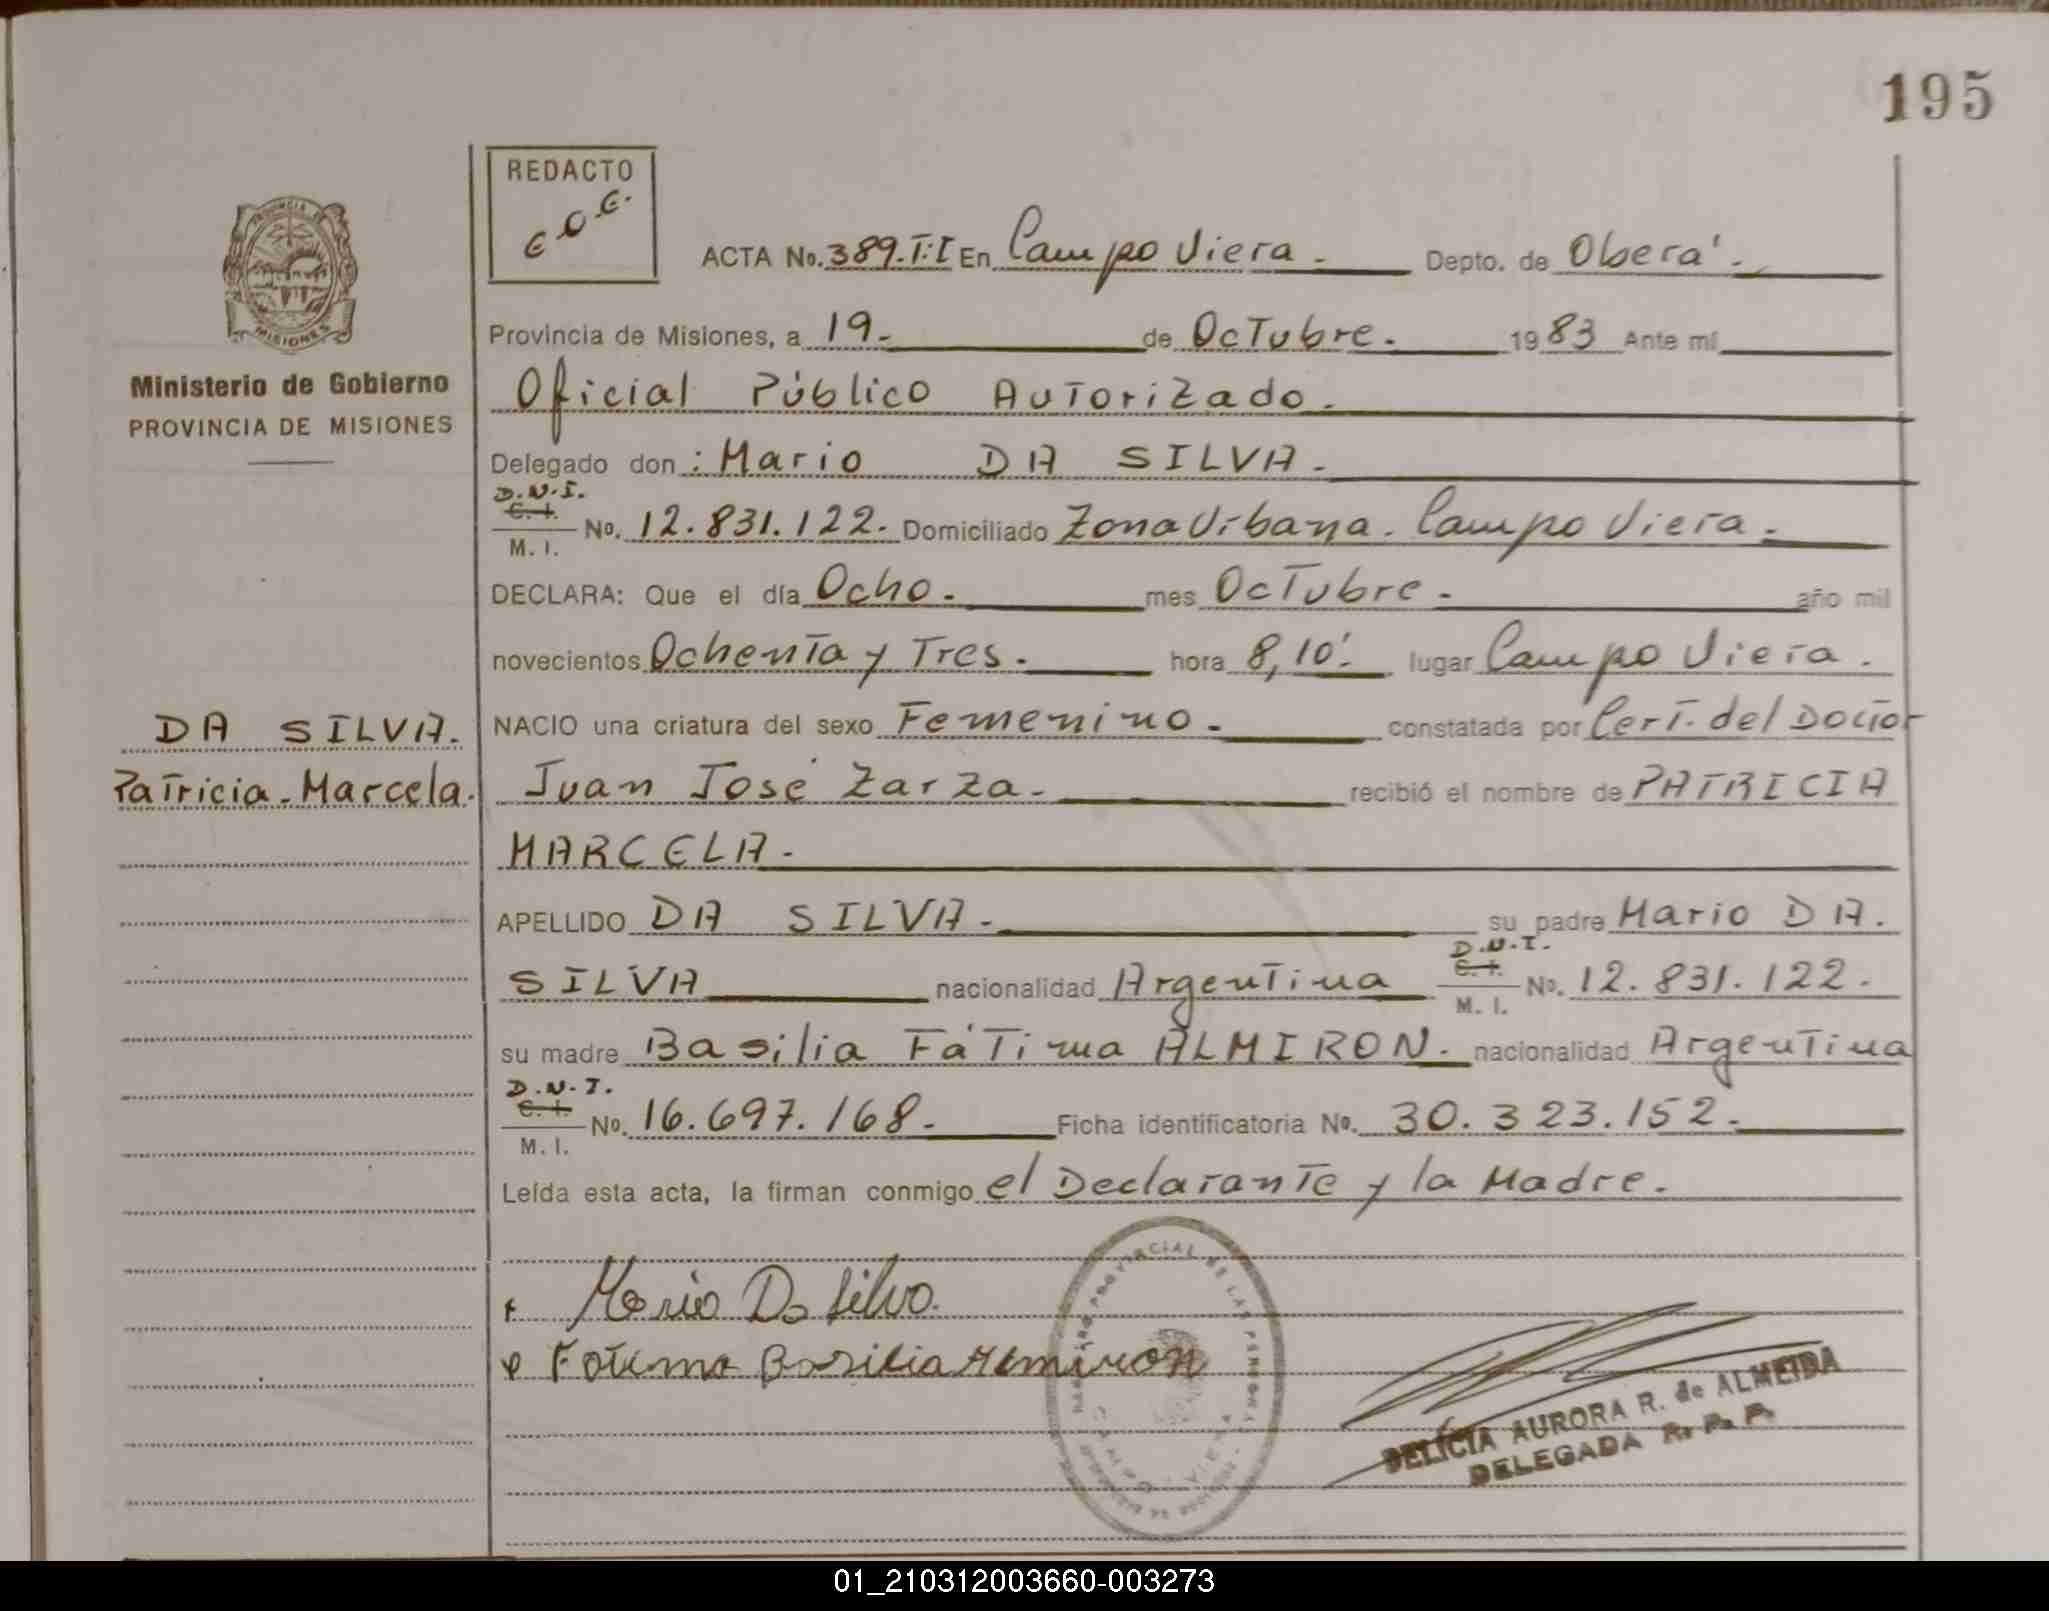 195
REDACTO
C O C.
ACTA No. 389.T:I En Campo Viera. Depto. de Oberá.
Provincia de Misiones, a 19. de Octubre. 1983 Ante mí
Ministerio de Gobierno
PROVINCIA DE MISIONES
Oficial Público Autorizado.
Delegado don: Mario DA SILVA.
D.N.I.
C. I.
M. I.
No. 12.831.122. Domiciliado Zona Urbana. Campo Viera.
DECLARA: Que el día Ocho. mes Octubre. año mil
novecientos Ochenta y Tres. hora 8,10'. lugar Campo Viera.
DA SILVA.
Patricia. Marcela.
NACIO una criatura del sexo Femenino. constatada por Cert. del Doctor
Juan José Zarza. recibió el nombre de PATRICIA
MARCELA.
APELLIDO DA SILVA. su padre Mario DA.
SILVA nacionalidad Argentina D.N.I. C. I. M. I. No. 12.831.122.
su madre Basilia Fátima ALMIRON. nacionalidad Argentina
D.N.I. C. I. M. I. No. 16.697.168. Ficha identificatoria No. 30.323.152.
Leída esta acta, la firman conmigo el Declarante y la Madre.
Mario Da Silva.
Fatima Basilia Almiron
REGISTRO PROVINCIAL DE LAS PERSONAS
CAMPO VIERA
DELICIA AURORA R. de ALMEIDA
DELEGADA R. P. P.
01_210312003660-003273